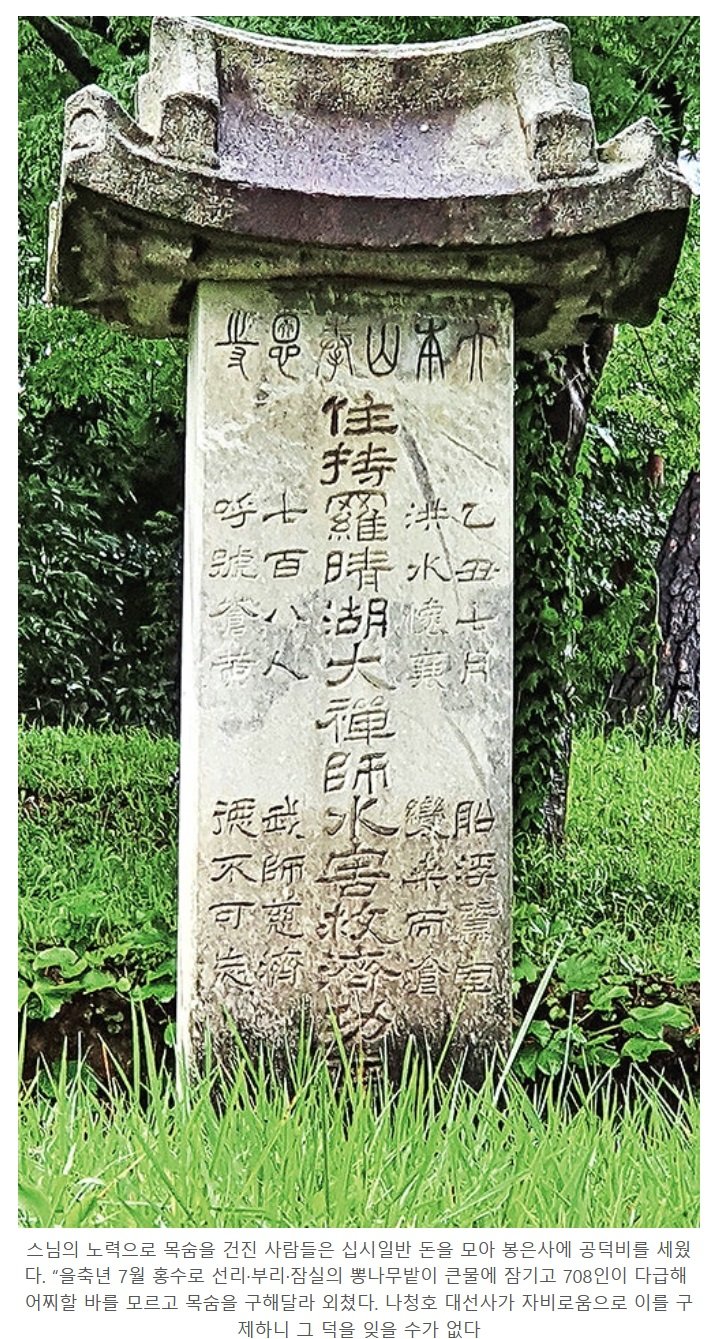 大本山奉恩寺
乙丑七月 船浮蠶室
洪水懷襄 變桑而滄
住持羅晴湖大禪師水害救濟功
七百八人 我師慈濟
呼號蒼茫 德不可忘
스님의 노력으로 목숨을 건진 사람들은 십시일반 돈을 모아 봉은사에 공덕비를 세웠
다. “을축년 7월 홍수로 선리·부리·잠실의 뽕나무밭이 큰물에 잠기고 708인이 다급해
어찌할 바를 모르고 목숨을 구해달라 외쳤다. 나청호 대선사가 자비로움으로 이를 구
제하니 그 덕을 잊을 수가 없다